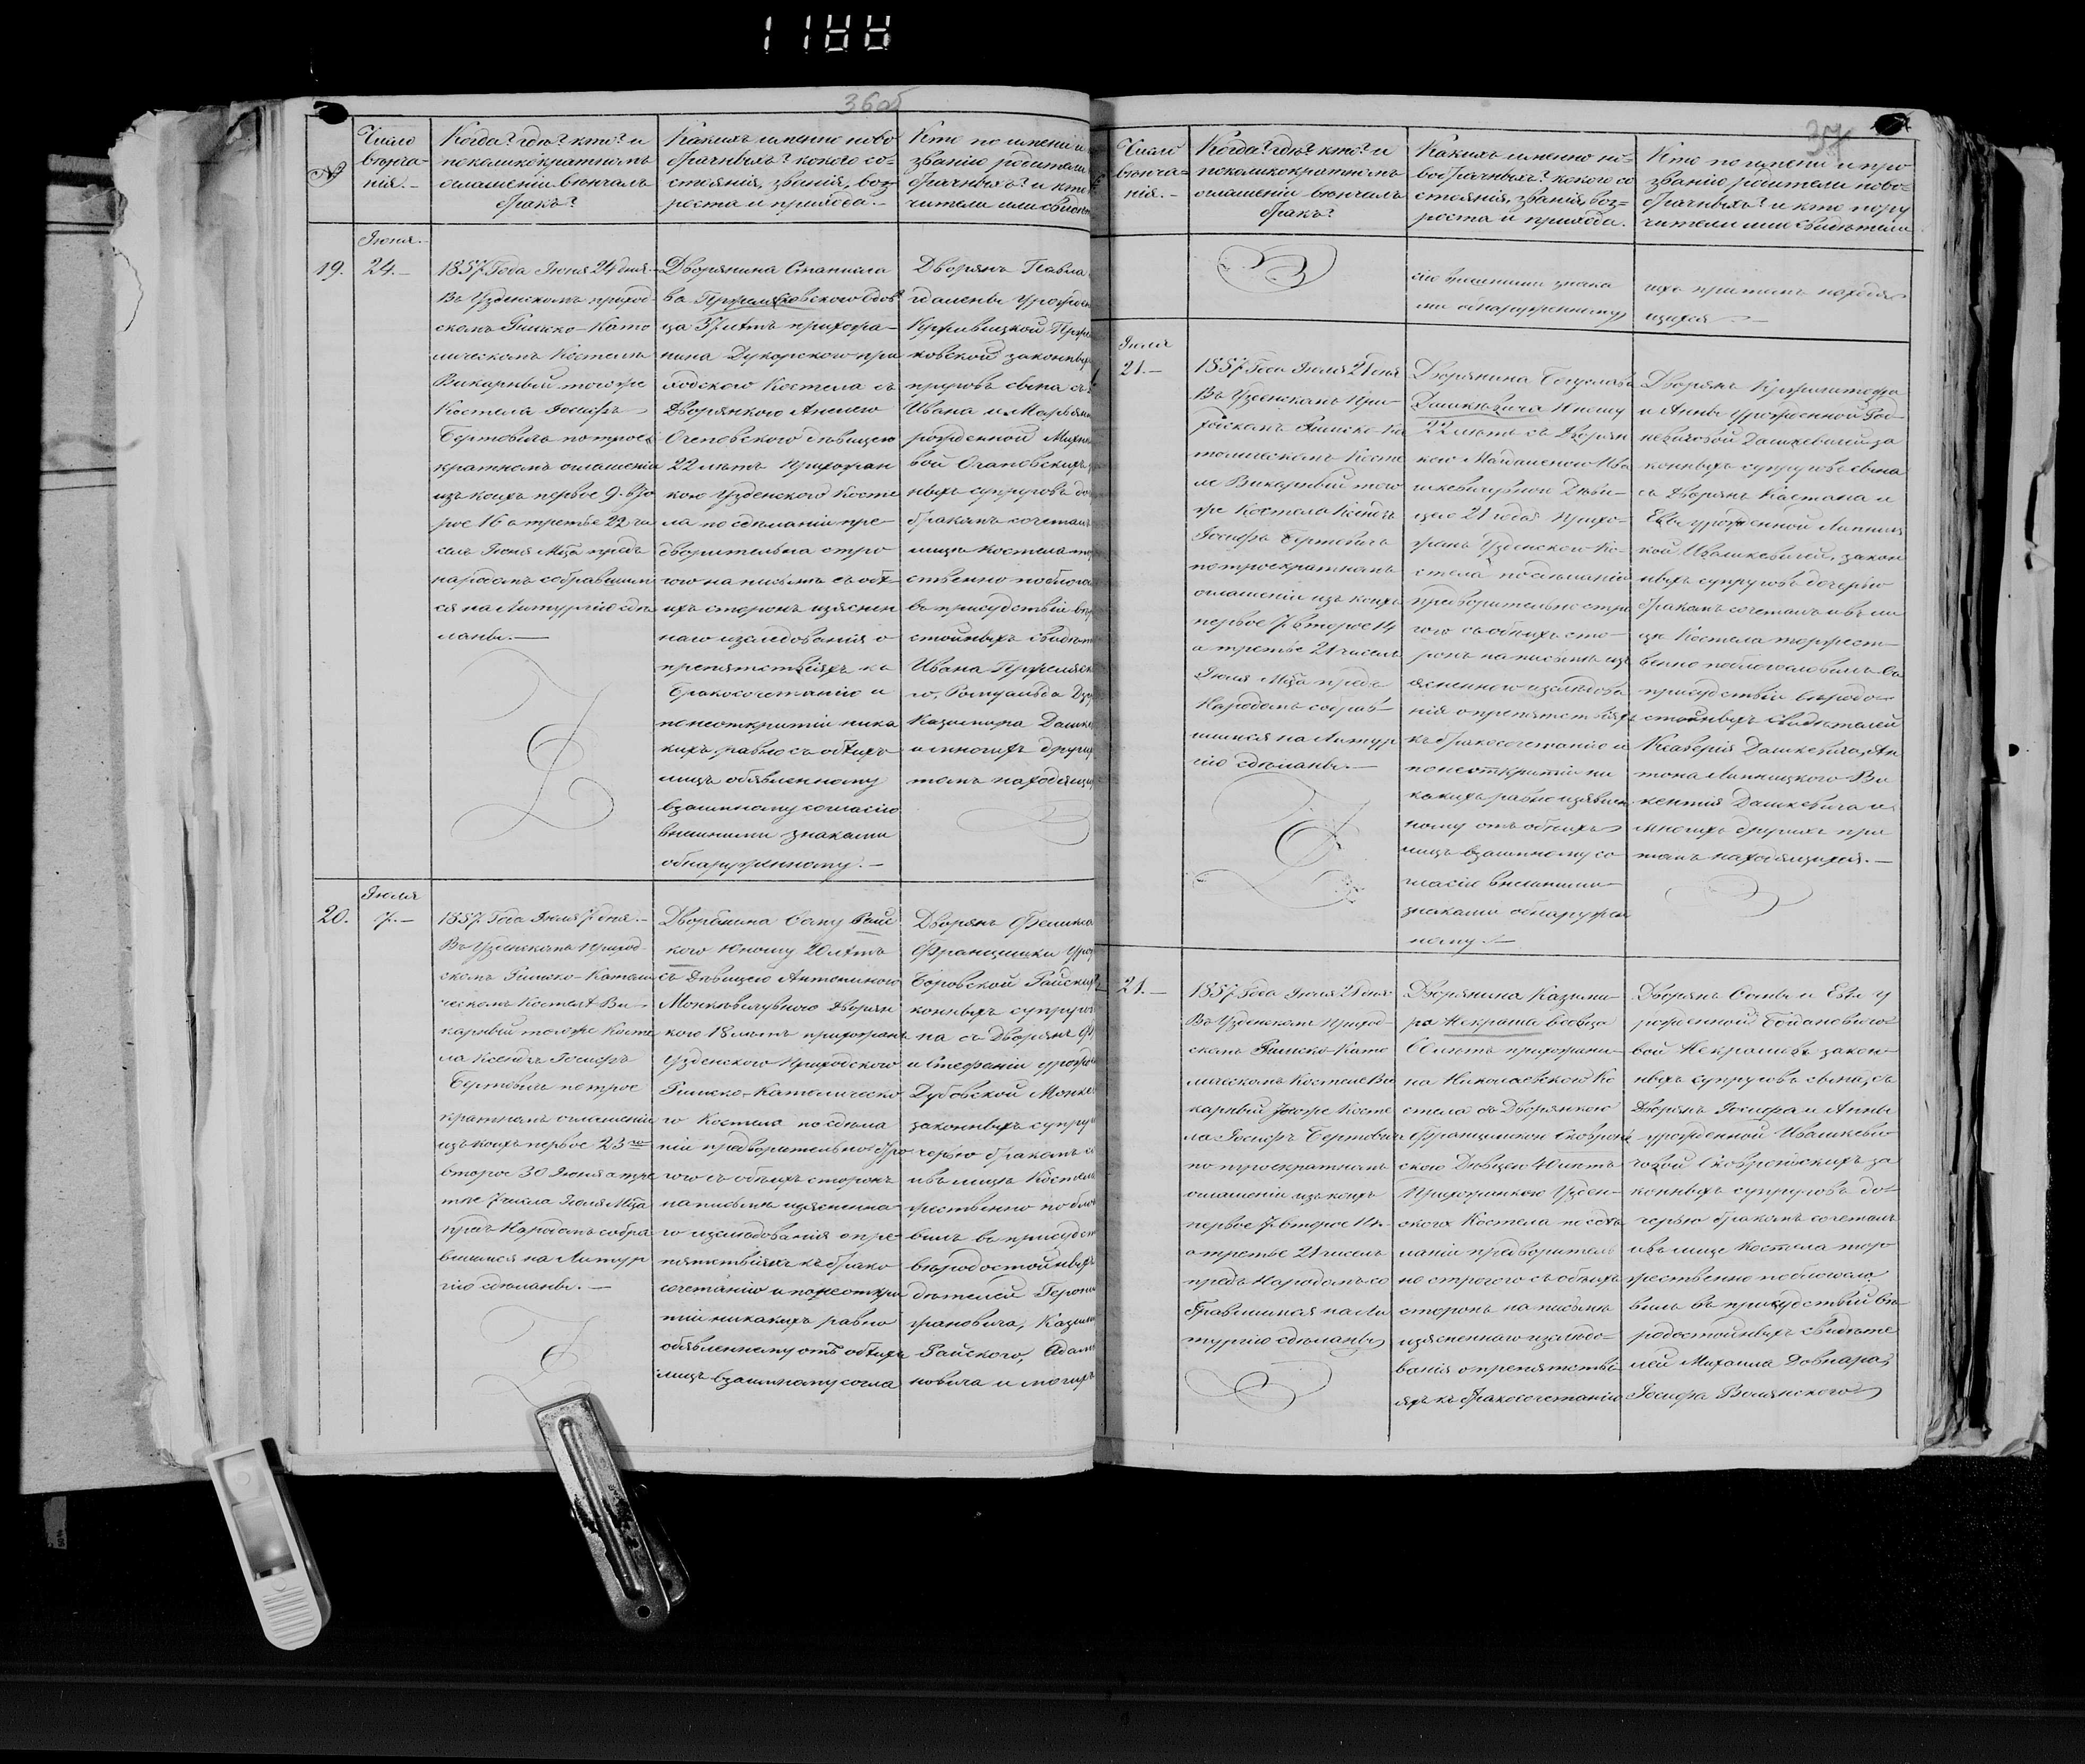 1188
36 об
№
Число
вѣнча-
нія.-
Когда? гдѣ? кто? и
по колико кратномъ
оглашеніи вѣнчалъ
бракъ?
Какихъ именно ново
брачныхъ? какого со-
стоянія, званія, воз-
роста и прихода.-
Кто по имени и
званію родители
брачныхъ? и кто
чители или свидѣт
19.
Іюня.-
24.-
1857 Года Іюня 24 дня
Въ Узденскомъ приход
скомъ Римско-Като
лическомъ Костелѣ
Викарный того же
Костела Іосифъ
Бертовичъ по трое
кратномъ оглашеніи
изъ коихъ первое 9. вто
рое 16 а третье 22 чи
селъ Іюня Мца предъ
народомъ собравшим
ся на Литургію сдѣ
ланы.-
Дворянина Станисла
ва вдов
ца лѣтъ прихожа-
нина Дукорского при
ходского Костела съ
Дворянкою
дѣвицею
22 лѣтъ прихожан
кою Узденского Косте
ла по сдѣланіи пре-
дворительна стро
гого на письмѣ съ обѣ
ихъ сторонъ изяснен
наго изследованія о
препятствіяхъ къ
бракосочетанію и
по неоткрытіи ника
кихъ равно съ обѣихъ
лицъ обявленному
взаимному согласію
внешними знаками
обнаруженному.-
Дворянъ Павла
ковской законныхъ
пруговъ сына съ
Ивана и Марьяны
рожденной
вой
ныхъ супруговъ до
бракомъ сочеталъ
лицѣ Костела тор
ственно поблаго
въ присудствіи вѣр
стойныхъ свидѣт
Ивана
го, Ромуальда
Казимира Дашке
и многихъ другихъ
томъ находящи
20.
Іюля
7.-
1857 Года Іюля 7 дня.-
Въ Узденскомъ приход-
скомъ Римско-Католи
ческомъ Костелѣ Ви-
карный того же Косте
ла Ксендзъ Іосифъ
Бертовичъ по трое
кратномъ оглашеніи
изъ коихъ первое 23го
второе 30 Іюня а тре
тье 7 числа Іюля Мца
предъ Народомъ собра
вшимся на Литур
гію сдѣланы.-
Дворянина Осипу Рай
кого Юношу 20 лѣтъ
съ Дѣвицею Антониною
Дворян
кою 18 лѣтъ прихожан
Узденского Приходского
Римско-Католическо
го Костела по сдѣла
ніи предворительно стро
гого съ обѣихъ сторонъ
на письмѣ изясненна
го изследованія о пре
пятствіяхъ къ брако
сочетанію и по неоткры
тіи никакихъ равно
обявленному отъ обѣихъ
лицъ взаимному согла
Дворянъ Феликса
Францишки урож
Боровской Райских
конныхъ супруго
на съ Дворянъ
и Стефаніи урожд
Дубовской
законныхъ супру
черью бракомъ с
и въ лицѣ Костела
жественно побла
вилъ въ присудст
вѣродостойныхъ
дѣтелей Герони
Казими
Райского, Адам
новича и многихъ
37
Число
вѣнча-
нія.-
Когда? гдѣ? кто? и
по колико кратномъ
оглашеніи вѣнчалъ
бракъ?
Какихъ именно но-
вобрачныхъ? какого со
стоянія, званія, воз-
роста и прихода.
Кто по имени и про
званію родители ново-
брачныхъ? и кто пору
чители или свидѣтели
сію внешними знака
ми обнаруженному
ихъ притомъ находя
щихся.-
Іюля
21.-
1857 Года Іюля 21 дня
Въ Узденскомъ При-
ходскомъ Римско-Ка
толическомъ Косте
лѣ Викарный того
же Костела Ксендзъ
Іосифъ Бертовичъ
по троекратномъ
оглашеніи изъ коихъ
первое 7. второе 14
а третье 21 числъ
Іюля Мца предъ
Народомъ собрав
шимся на Литур
гію сдѣланы.-
Дворянина Богуслава
Дашкѣвича Юношу
22 лѣтъ съ Дворян
кою Магдаленою Ива
шкевичувною Дѣви-
цею 21 года Прихо-
жанъ Узденского Ко-
стела по сдѣланіи
предворительно стро
гого съ обѣихъ сто-
ронъ на письмѣ изъ
ясненного изследова
нія о препятствіяхъ
къ бракосочетанію и
по неоткрытіи ни
какихъ равно изявлен
ному отъ обѣихъ
лицъ взаимному со
гласію внешними
знаками обнаружен
ному.-
Дворянъ Крыштофа
и Анны урожденной
Дашкевичей за
конныхъ супруговъ сына
съ Дворянъ Каетана и
Евы урожденной Липниц
кой Ивашкевичей, закон
ныхъ супруговъ дочерью
бракомъ сочеталъ и въ ли
цѣ Костела торжест-
венно поблагословилъ въ
присудствіи вѣродо-
стойныхъ свидѣтелей
Ксаверія Дашкевича, Ан
тона Липницкого Ви
кентія Дашкевича и
многихъ другихъ при
томъ находящихся.-
21.-
1857 Года Іюля 21 дня
Въ Узденскомъ Приход-
скомъ Римско-Като
лическомъ Костелѣ Ви
карный тогоже Косте
ла Іосифъ Бертовичъ
по троекратномъ
оглашеніи изъ коихъ
первое 7. второе 14.
а третье 21 числъ
предъ Народомъ со
бравшимся на Ли
тургію сдѣланы
Дворянина Казими-
ра Некраша вдовца
лѣтъ прихожани-
на Николаевского Ко
стела съ Дворянкою
Францишкою Сковрон
скою Дѣвицею 40 лѣтъ
Прихожанкою Узден-
ского Костела по сдѣ
ланіи предворитель
но строгого съ обѣихъ
сторонъ на письмѣ
изясненнаго изследо-
ванія о препятстві-
яхъ къ бракосочетанію
Дворянъ Осипа и Евы у
рожденной Богданович
вой Некрашовъ закон
ныхъ супруговъ сына, съ
Дворянъ Іосифа и Анны
урожденной Ивашкевич
човой Сковронскихъ за
конныхъ супруговъ до-
черью бракомъ сочеталъ
и въ лицѣ Костела тор
жественно поблагосло
вилъ въ присудствіи вѣ-
родостойныхъ свидѣте
лей Михаила Довнара,
Іосифа